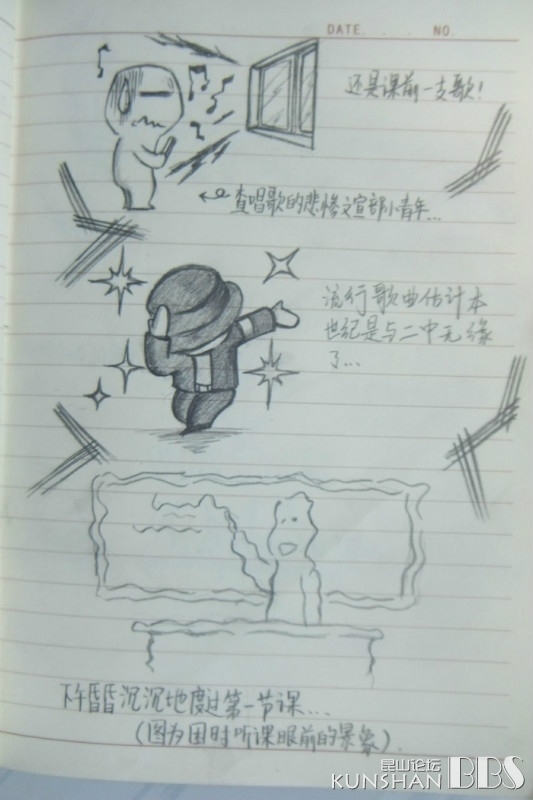 DATE. . . . NO.
还是课前一支歌!
查唱歌的悲惨文宣部小青年...
流行歌曲估计本
世纪是与二中无缘
了...
下午昏昏沉沉地度过第一节课...
(图为困时听课眼前的景象).
昆山论坛
KUNSHAN BBS